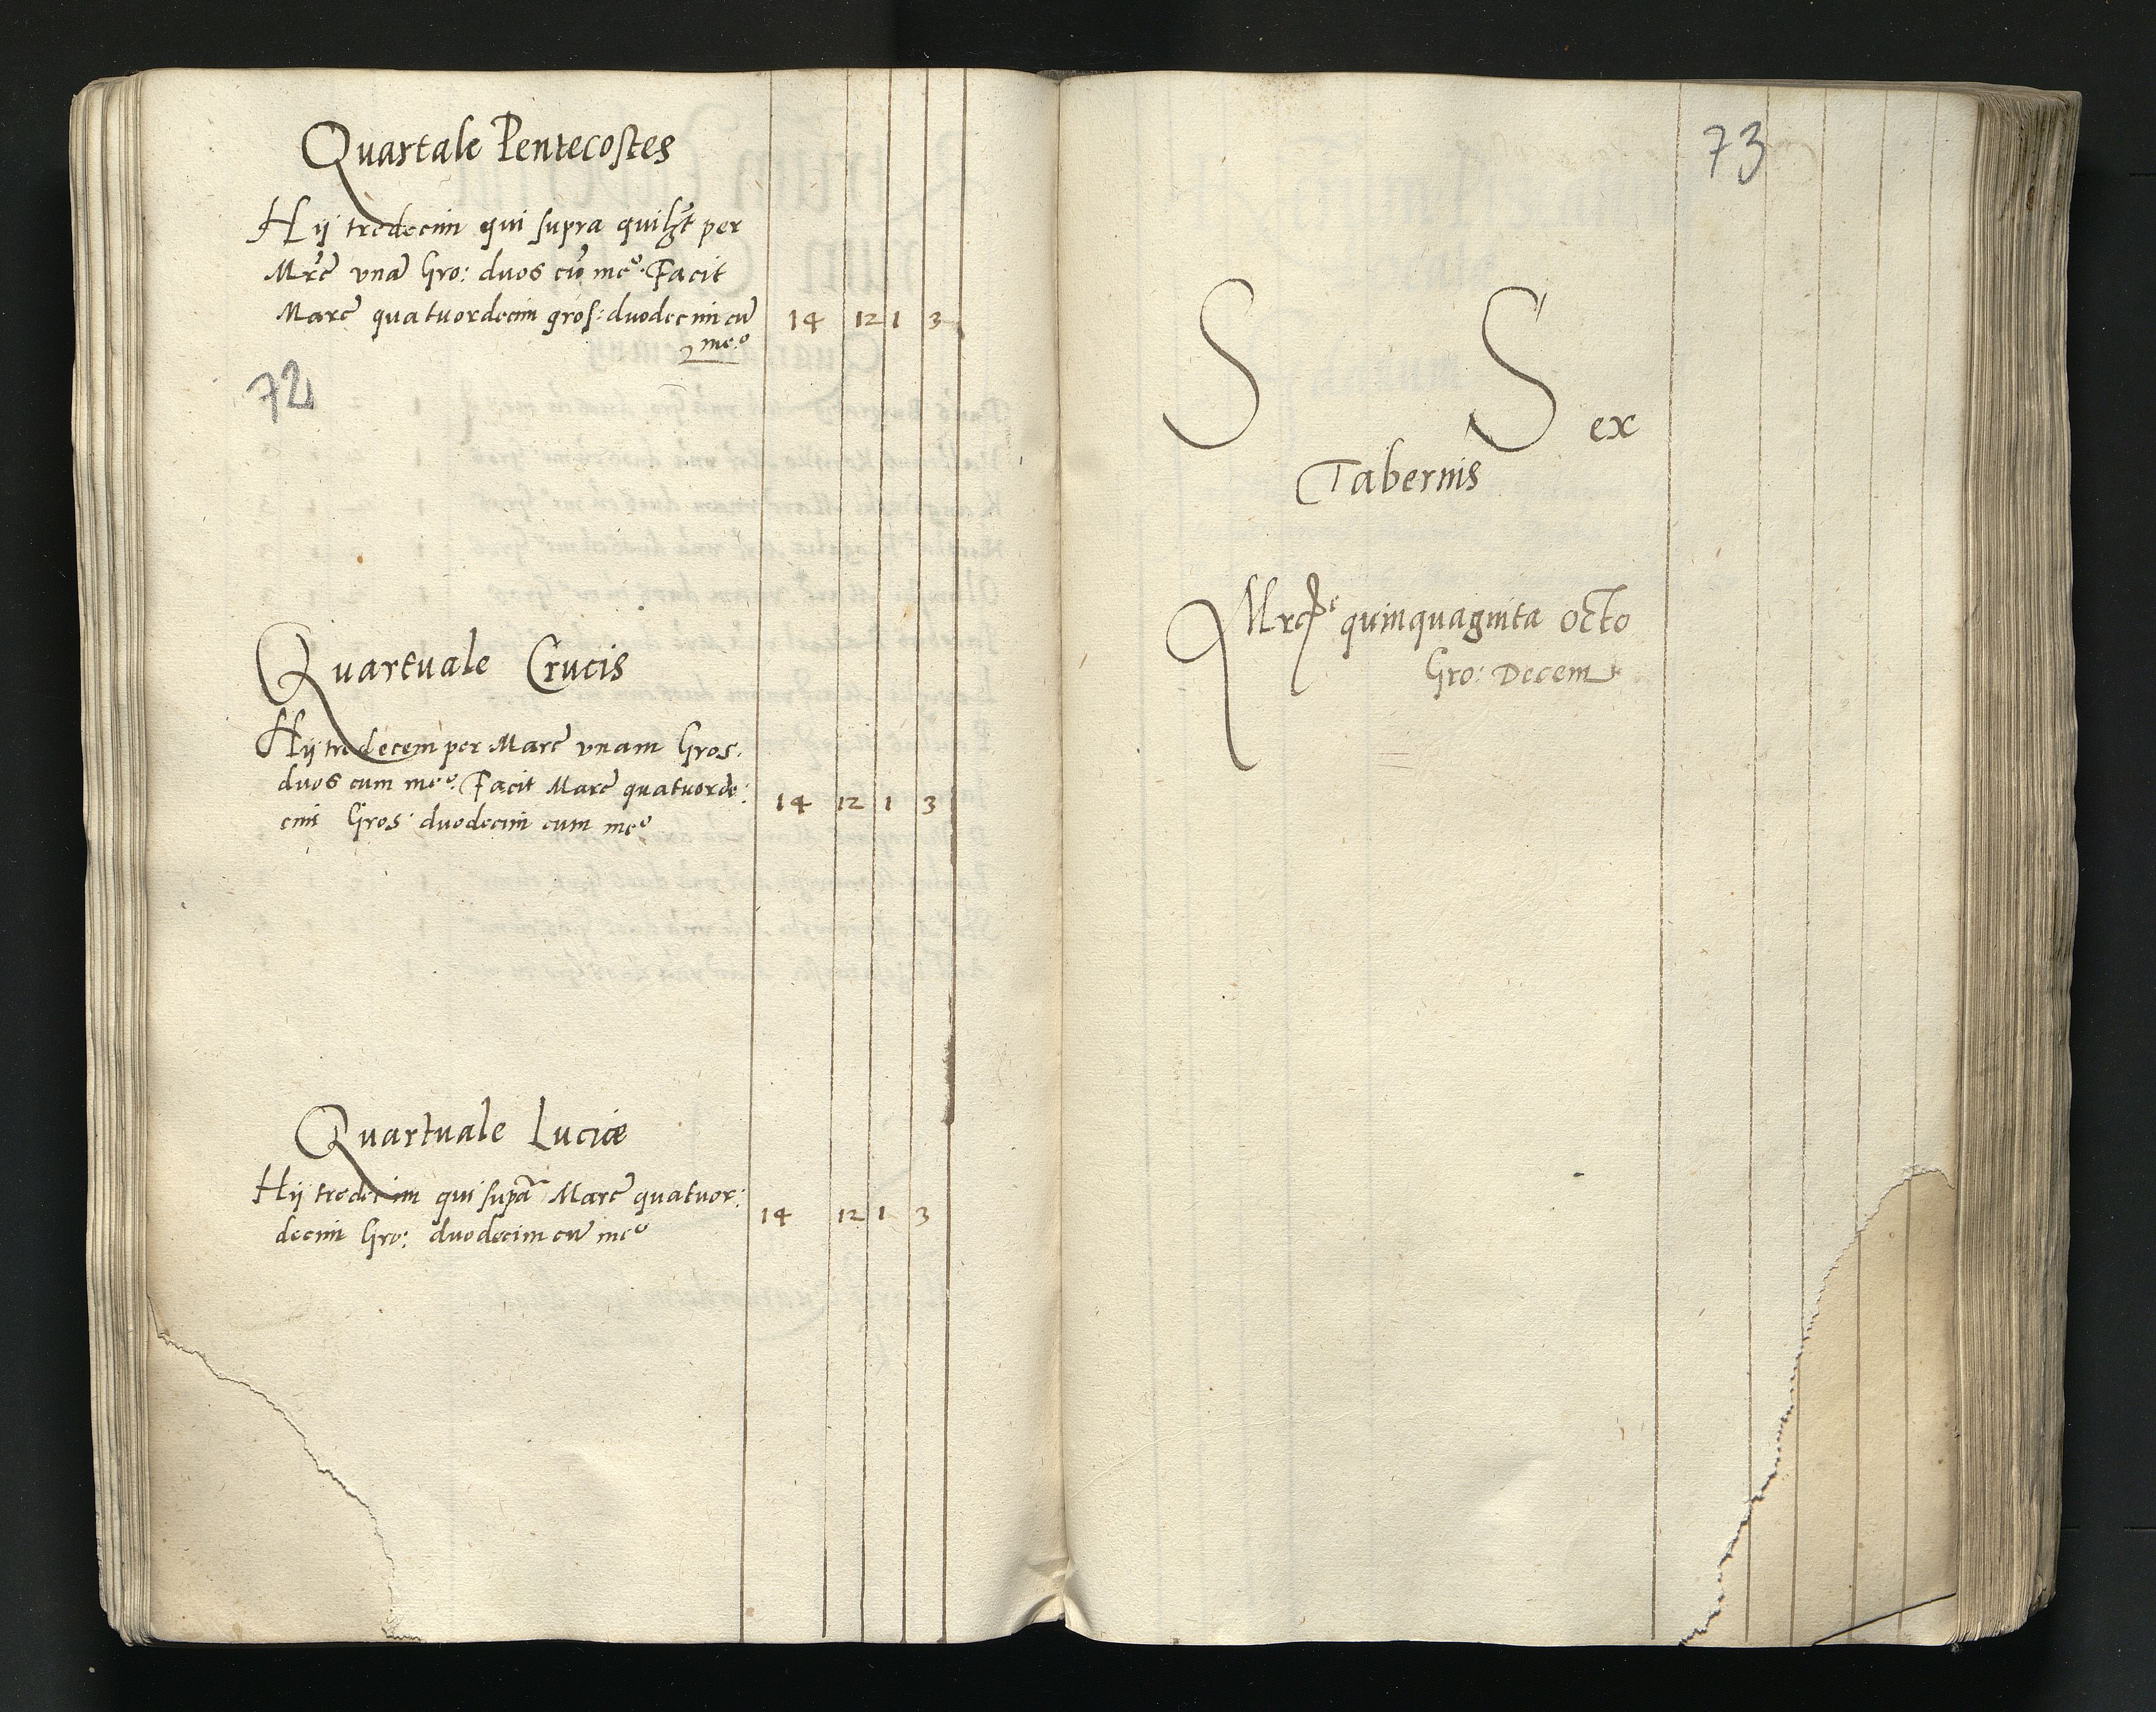 Quartale Pentecostes
Hij tredecim qui supra quilʒt per
Mrc̃ vnã Gro: duos cũ meº. Facit
Marc̃ quatuordecim gros: duodecim cũ 14 12 1 3
meº
72
Quartuale Crucis
Hij tredecem per Marc̃ vnam Gros:
duos cum meº. Facit Marc̃ quatuorde: 14 12 1 3
cim Gros: duodecim cum meº
Quartuale Luciæ
Hij tredecim qui supã Marc̃ quatuor: 14 12 1 3
decim Gro: duodecim cũ meº
73
S S ex
Tabernis
quinquaginta octo
Gro: Decem